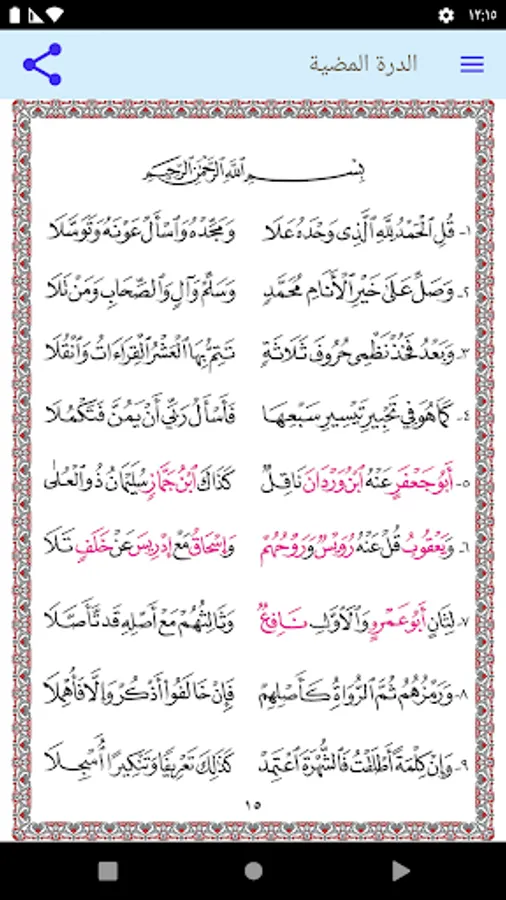 ١٢:١٥
الدرة المضية
بِسْمِ اللَّهِ الرَّحْمَٰنِ الرَّحِيمِ
١- قُلِ الْحَمْدُ لِلَّهِ الَّذِي وَحْدَهُ عَلَا وَمَجِّدْهُ وَاسْأَلْ عَوْنَهُ وَتَوَسَّلَا
٢- وَصَلِّ عَلَى خَيْرِ الْأَنَامِ مُحَمَّدٍ وَسَلِّمْ وَآلٍ وَالصِّحَابِ وَمَنْ تَلَا
٣- وَبَعْدُ فَخُذْ نَظْمِي حُرُوفَ ثَلَاثَةٍ تَتِمُّ بِهَا الْعَشْرُ الْقِرَاءَاتُ وَانْقُلَا
٤- كَمَا هُوَ فِي تَحْبِيرِ تَيْسِيرِ سَبْعِهَا فَأَسْأَلُ رَبِّي أَنْ يَمُنَّ فَتَكْمُلَا
٥- أَبُو جَعْفَرٍ عَنْهُ ابْنُ وَرْدَانَ نَاقِلٌ كَذَاكَ ابْنُ جَمَّازٍ سُلَيْمَانُ ذُو الْعُلَى
٦- وَيَعْقُوبُ قُلْ عَنْهُ رُوَيْسٌ وَرَوْحُهُمْ وَإِسْحَاقُ مَعْ إِدْرِيسَ عَنْ خَلَفٍ تَلَا
٧- لِثَانٍ أَبُو عَمْرٍو وَالْاَوَّلِ نَافِعٌ وَثَالِثُهُمْ مَعْ أَصْلِهِ قَدْ تَأَصَّلَا
٨- وَرَمْزُهُمُ ثُمَّ الرُّوَاةُ كَأَصْلِهِمْ فَإِنْ خَالَفُوا أَذْكُرْ وَإِلَّا فَأُهْمِلَا
٩- وَإِنْ كِلْمَةً أَطْلَقْتُ فَالشُّهْرَةَ اعْتَمِدْ كَذَلِكَ تَعْرِيفًا وَتَنْكِيرًا أُسْجِلَا
١٥